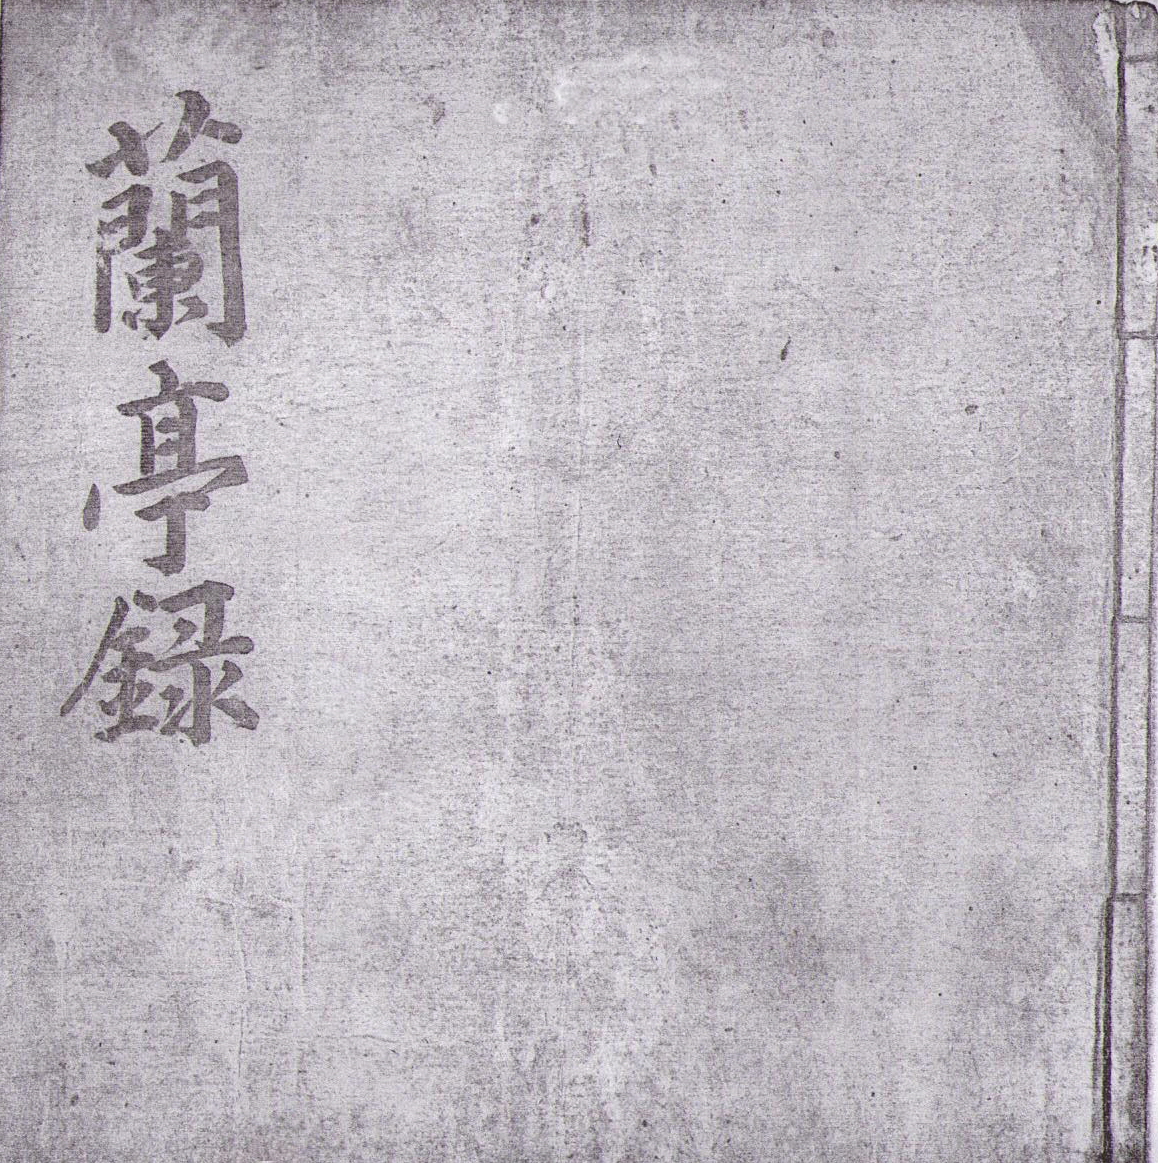 蘭亭録